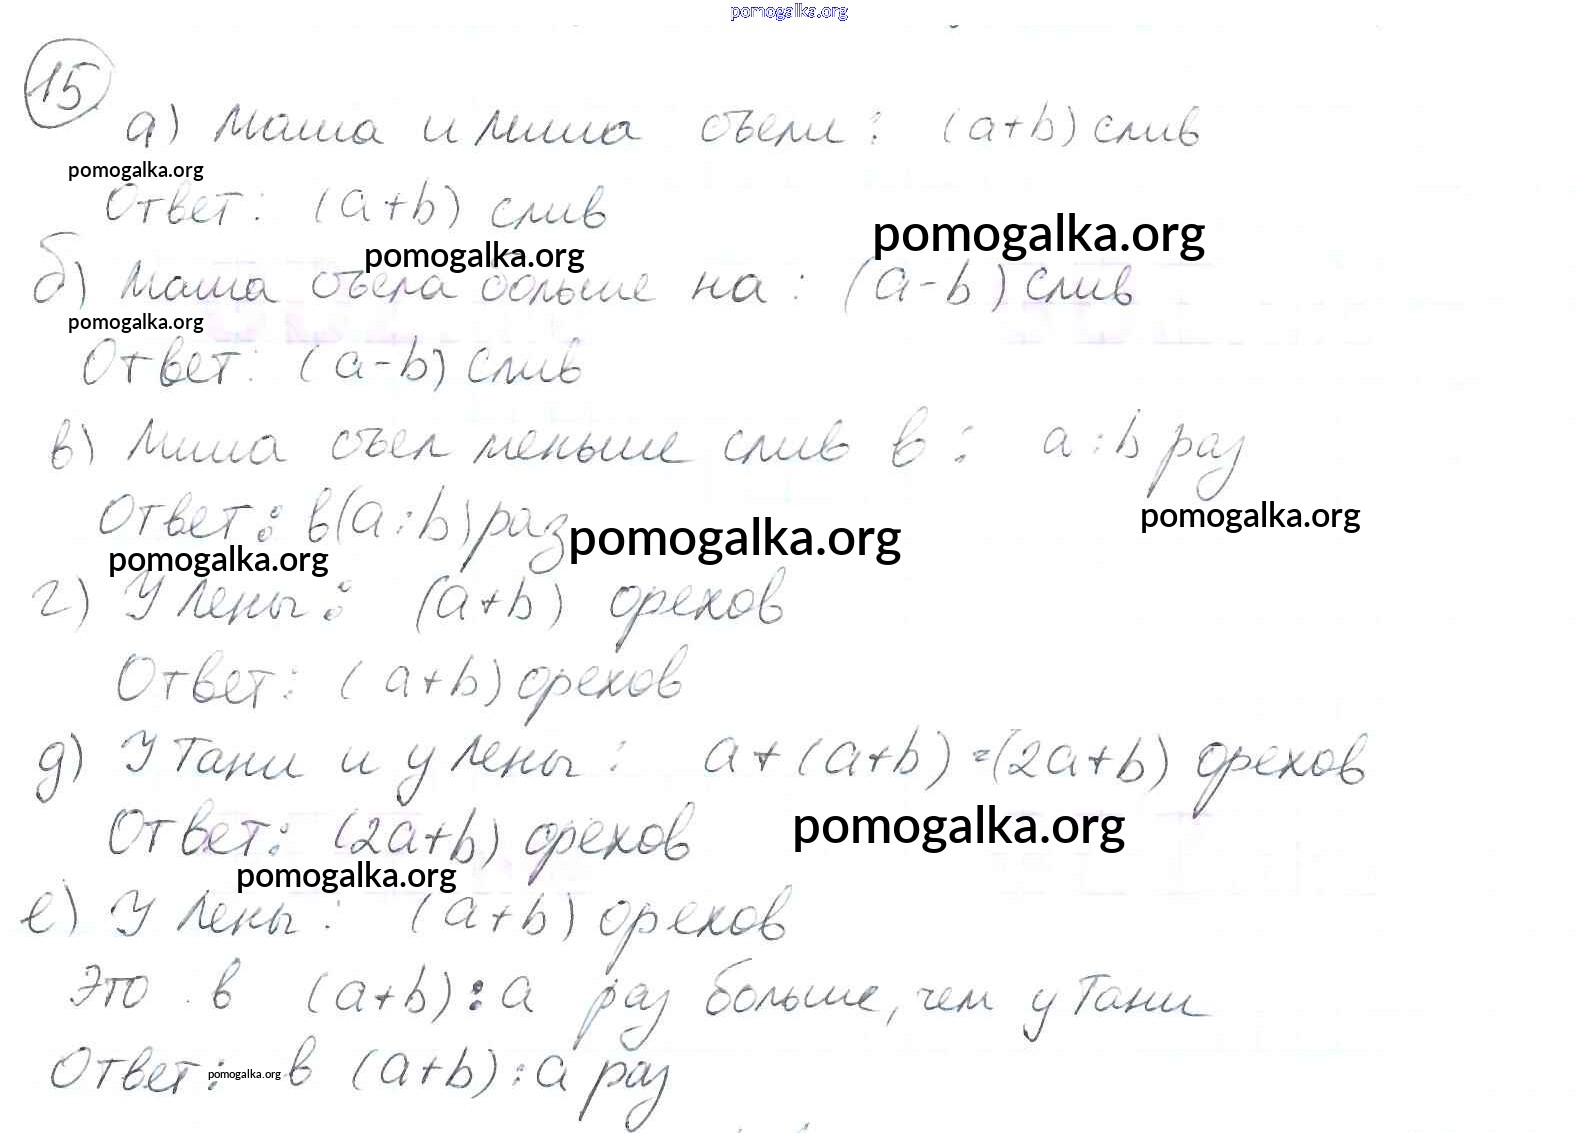 pomogalka.org
15
а) Маша и Миша съели: (a+b) слив
pomogalka.org
Ответ: (a+b) слив
pomogalka.org
pomogalka.org
б) Маша съела больше на: (a-b) слив
pomogalka.org
Ответ: (a-b) слив
в) Миша съел меньше слив в: a:b раз
Ответ: в (a:b) раз
pomogalka.org
pomogalka.org
pomogalka.org
г) У Лены: (a+b) орехов
Ответ: (a+b) орехов
д) У Тани и у Лены: a+(a+b)=(2a+b) орехов
Ответ: (2a+b) орехов
pomogalka.org
pomogalka.org
е) У Лены: (a+b) орехов
Это в (a+b):a раз больше, чем у Тани
Ответ: в (a+b):a раз
pomogalka.org